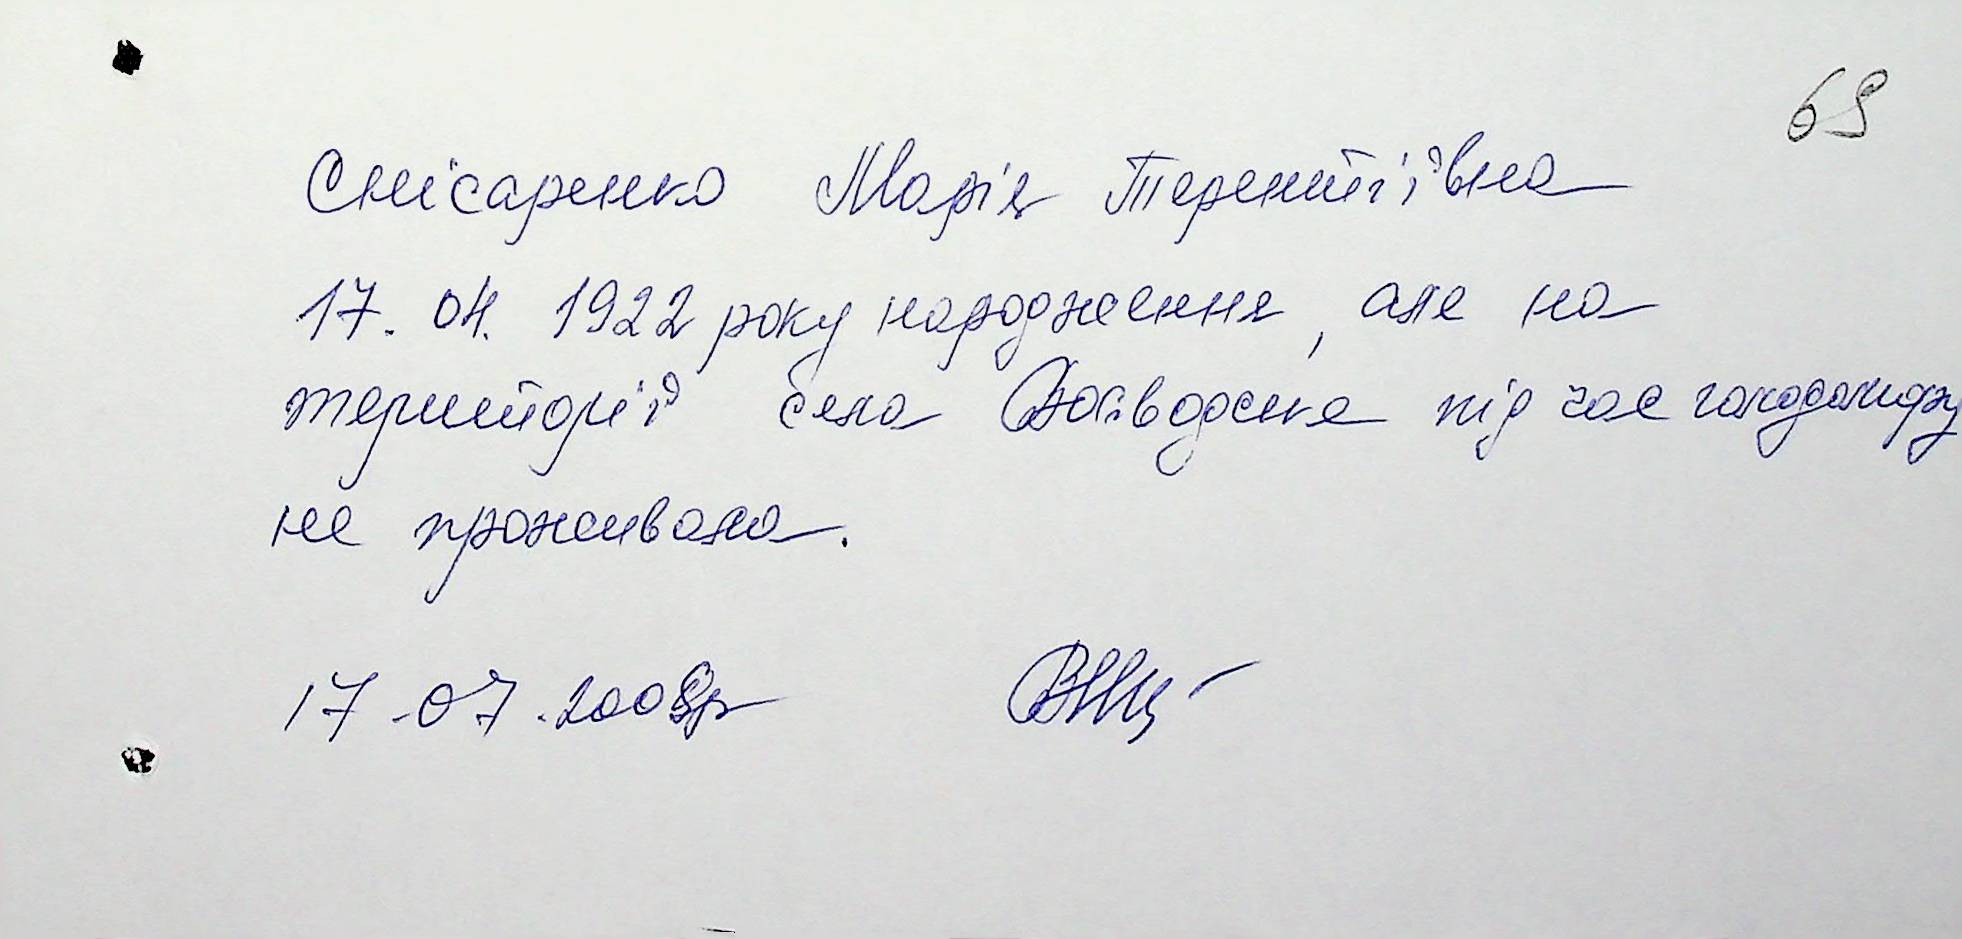 69
Снісаренко Марія Терентіївна
17. 04. 1922 року народження, але на
території села під час голодомору
не проживала.
17.07.2008р